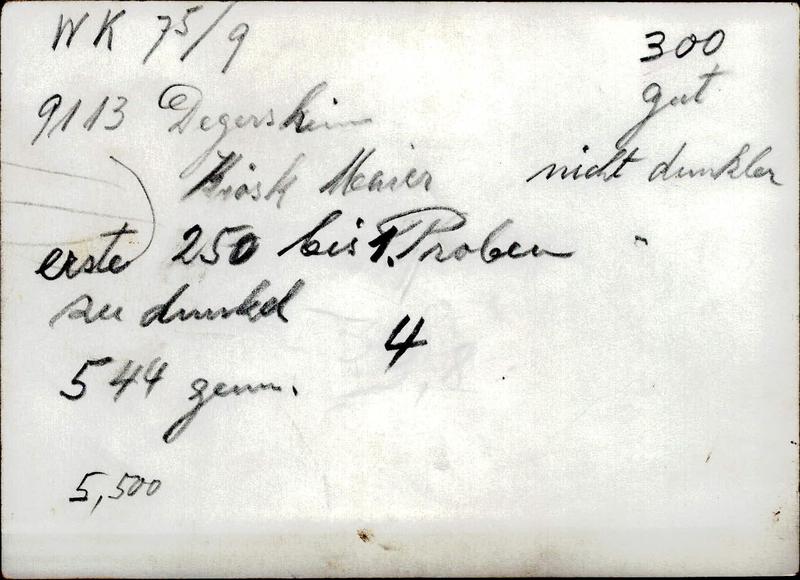 WK 75/9
300
gut
nicht dunkler
9113 Degersheim
Kiosk Maier
erste 250 bis 1. Proben "
zu dunkel
4
544 gem.
5,500